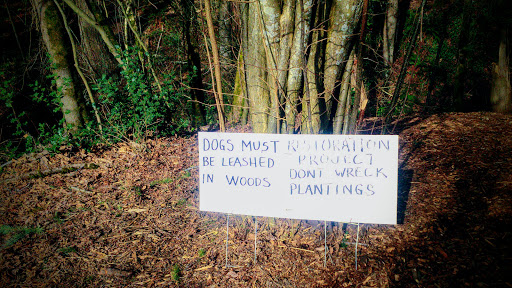 DOGS MUST
BE LEASHED
IN WOODS
RESTORATION
PROJECT
DONT WRECK
PLANTINGS